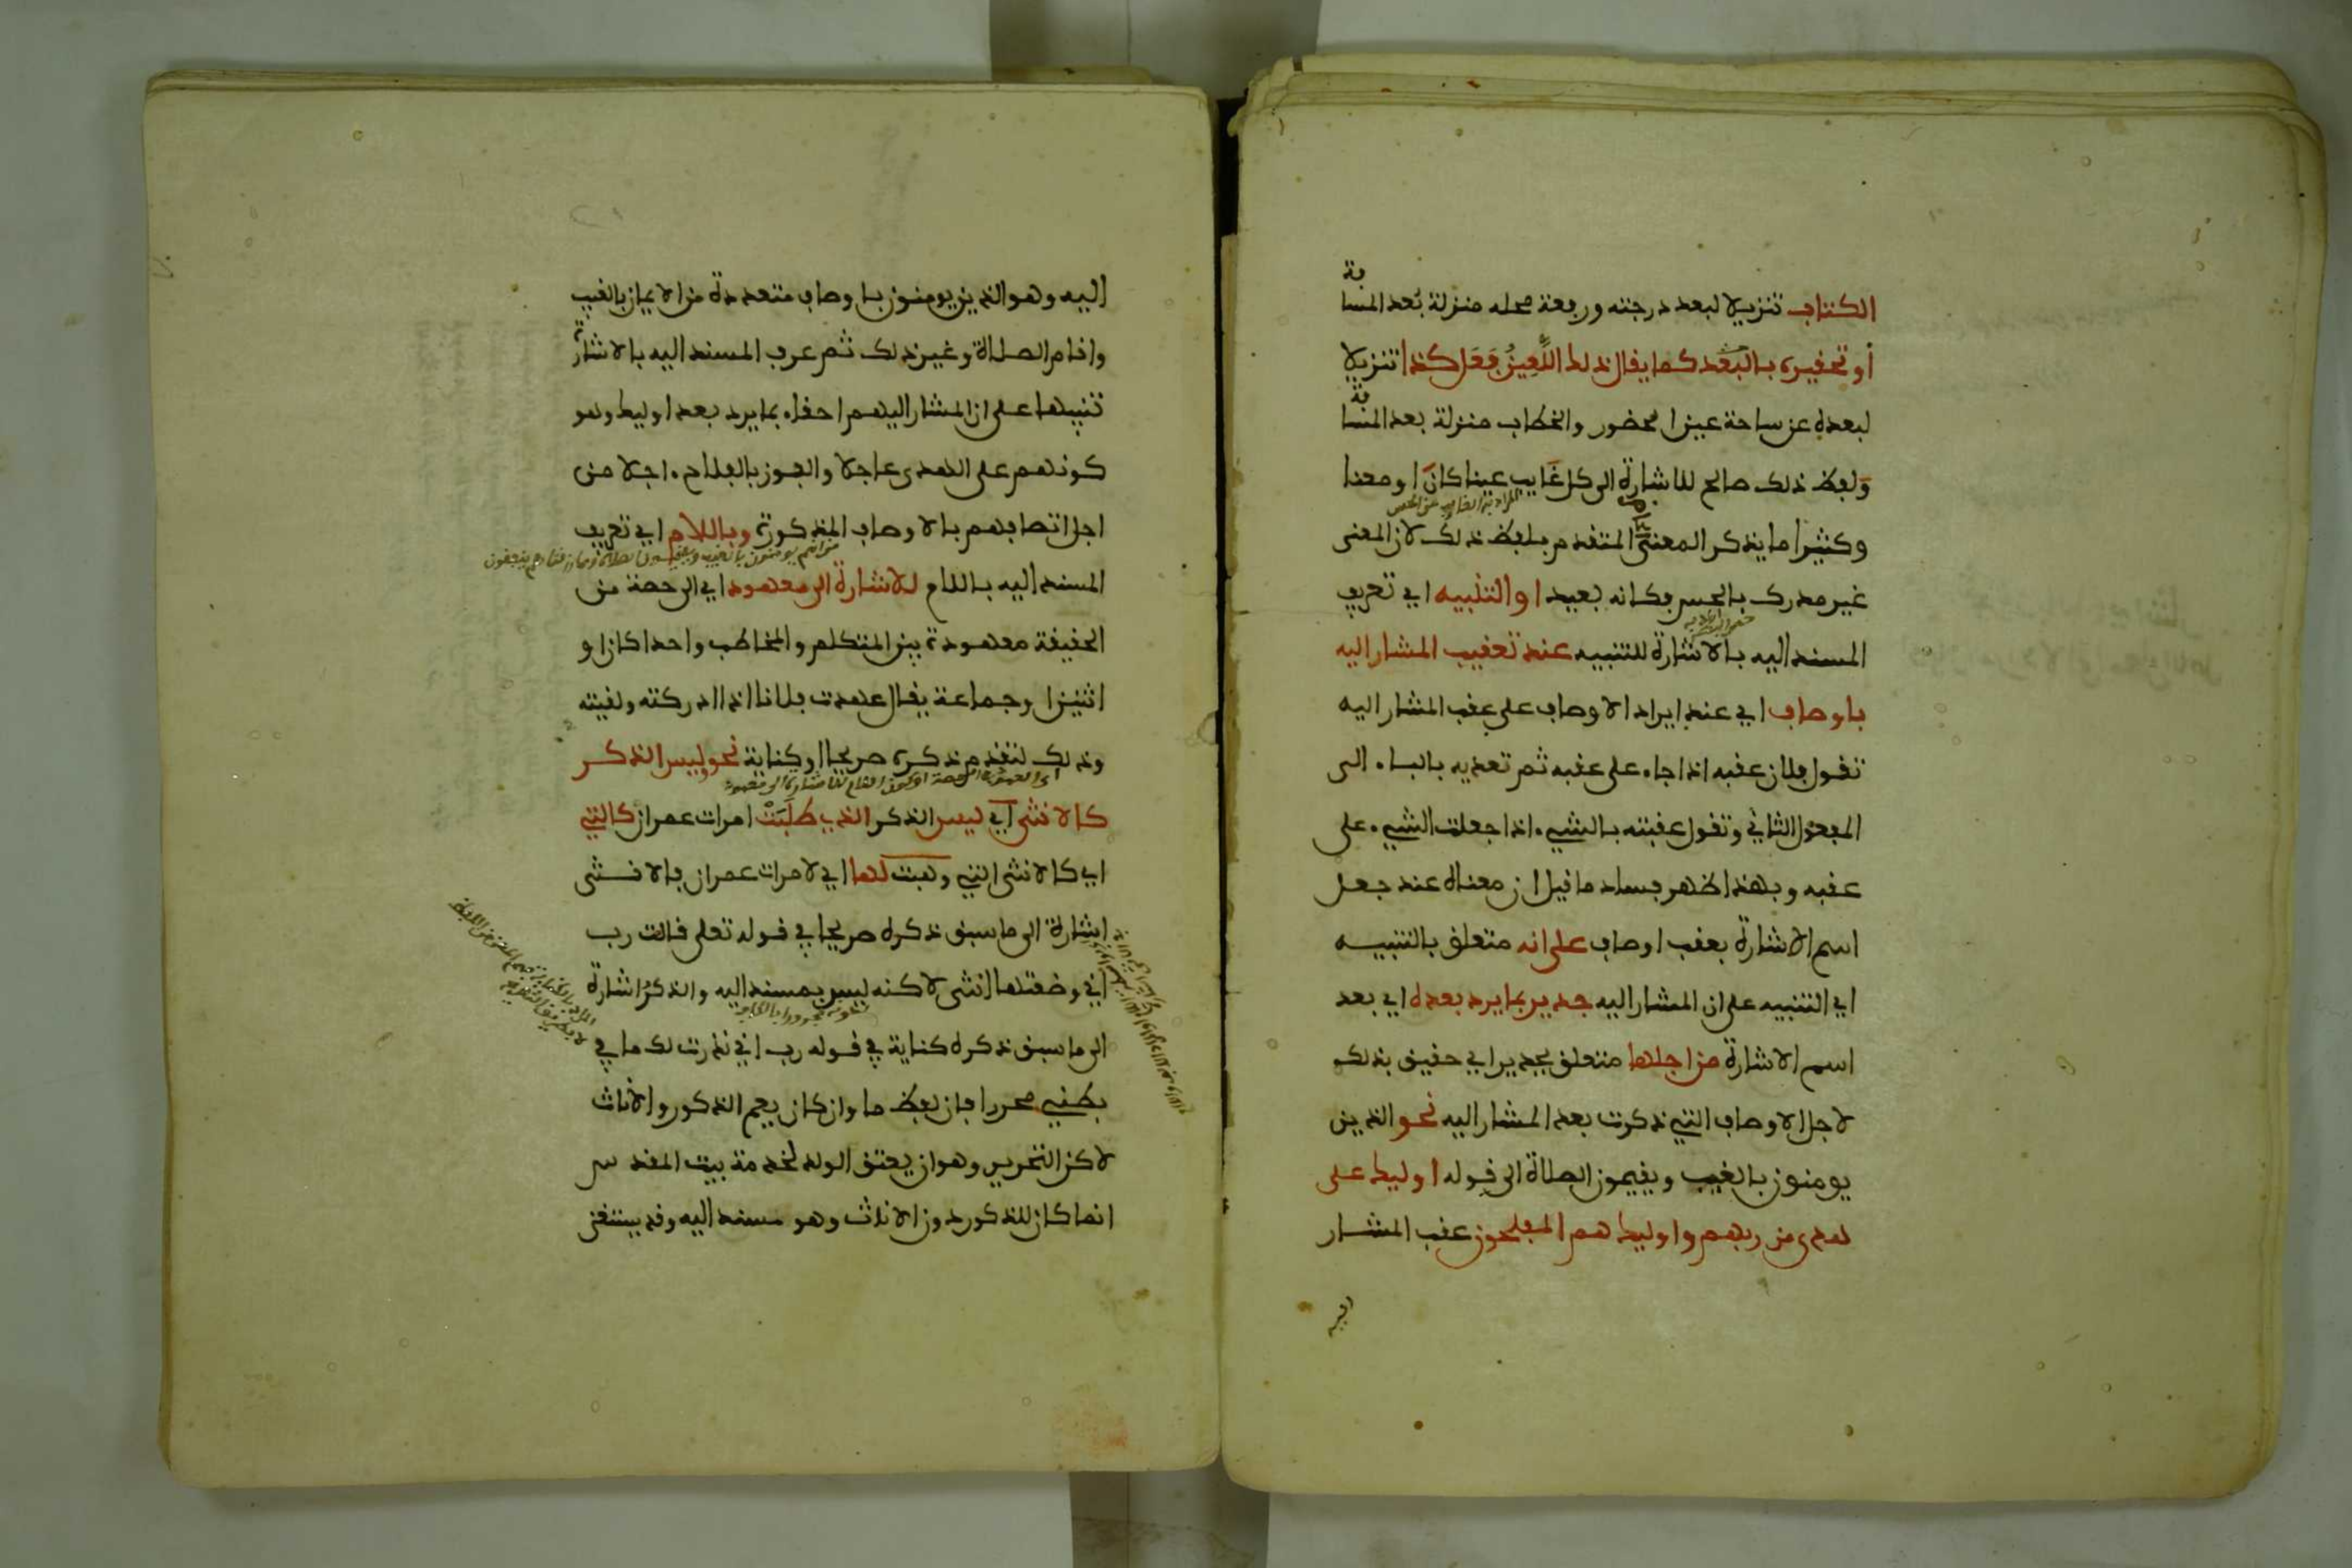 الكتاب تنزيلا لبعد درجته ورفعة محله منزلة بعد المسافة
أو تحقيره بالبعد كما يقال ذلك اللعين فعل كذا تنزيلا
لبعده عن ساحة عين الحضور والخطاب منزلة بعد المسافة
ولفظ ذلك صالح للاشارة الى كل غايب عينا كان او معنا
وكثيرا ما يذكر المعنى المتقدم بلفظ ذلك لان المعنى
غير مدرك بالحس فكانه بعيد او التنبيه اي تعريف
المسند اليه بالاشارة للتنبيه عند تعقيب المشار اليه
باوصاف اي عند ايراد الاوصاف على عقب المشار اليه
تقول فلان عقبه اذا جاء على عقبه ثم تعديه بالباء الى
المفعول الثاني وتقول عقبته بالشيء اذا جعلت الشيء على
عقبه وبهذا ظهر فساد ما قيل ان معناه عند جعل
اسم الاشارة بعقب اوصاف على انه متعلق بالتنبيه
اي التنبيه على ان المشار اليه جدير بما يرد بعده اي بعد
اسم الاشارة من اجلها متعلق بجدير اي حقيق بذلك
لاجل الاوصاف التي ذكرت بعد المشار اليه نحو الذين
يومنون بالغيب ويقيمون الصلاة الى قوله اوليك على
هدى من ربهم واوليك هم المفلحون عقب المشار
اليه
اليه وهو الذين يومنون باوصاف متعددة من الايمان بالغيب
واقام الصلاة وغير ذلك ثم عرف المسند اليه بالاشارة
تنبيها على ان المشار اليهم احقاء بما يرد بعد اوليك وهو
كونهم على الهدى عاجلا والفوز بالفلاح اجلا من
اجل اتصافهم بالاوصاف المذكورة وباللام اي تعريف
المسند اليه باللام للاشارة الى معهود اي الى حصة من
الحقيقة معهودة بين المتكلم والمخاطب واحدا كان او
اثنين او جماعة يقال عهدت فلانا اذا ادركته ولقيته
وذلك لتقدم ذكره صريحا او كناية نحو وليس الذكر
كالانثى اي ليس الذكر الذي طلبت امرات عمران كالتي
اي كالانثى التي وهبت لها اي لامرات عمران فالانثى
اشارة الى ما سبق ذكره صريحا في قوله تعلى قالت رب
اني وضعتها انثى لاكنه ليس بمسند اليه والذكر اشارة
الى ما سبق ذكره كناية في قوله رب اني نذرت لك ما في
بطني محررا فان لفظ ما وان كان يعم الذكور والاناث
لاكن التحرير وهو ان يعتق الولد لخدمة بيت المقدس
انما كان للذكور دون الاناث وهو مسند اليه وقد يستغنى